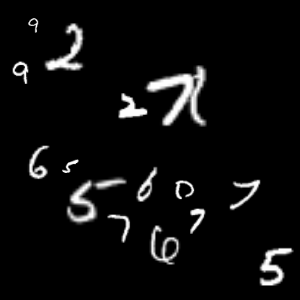 9
2
9
2 7 1
6 5
5 6 0 7
7 6 7
5